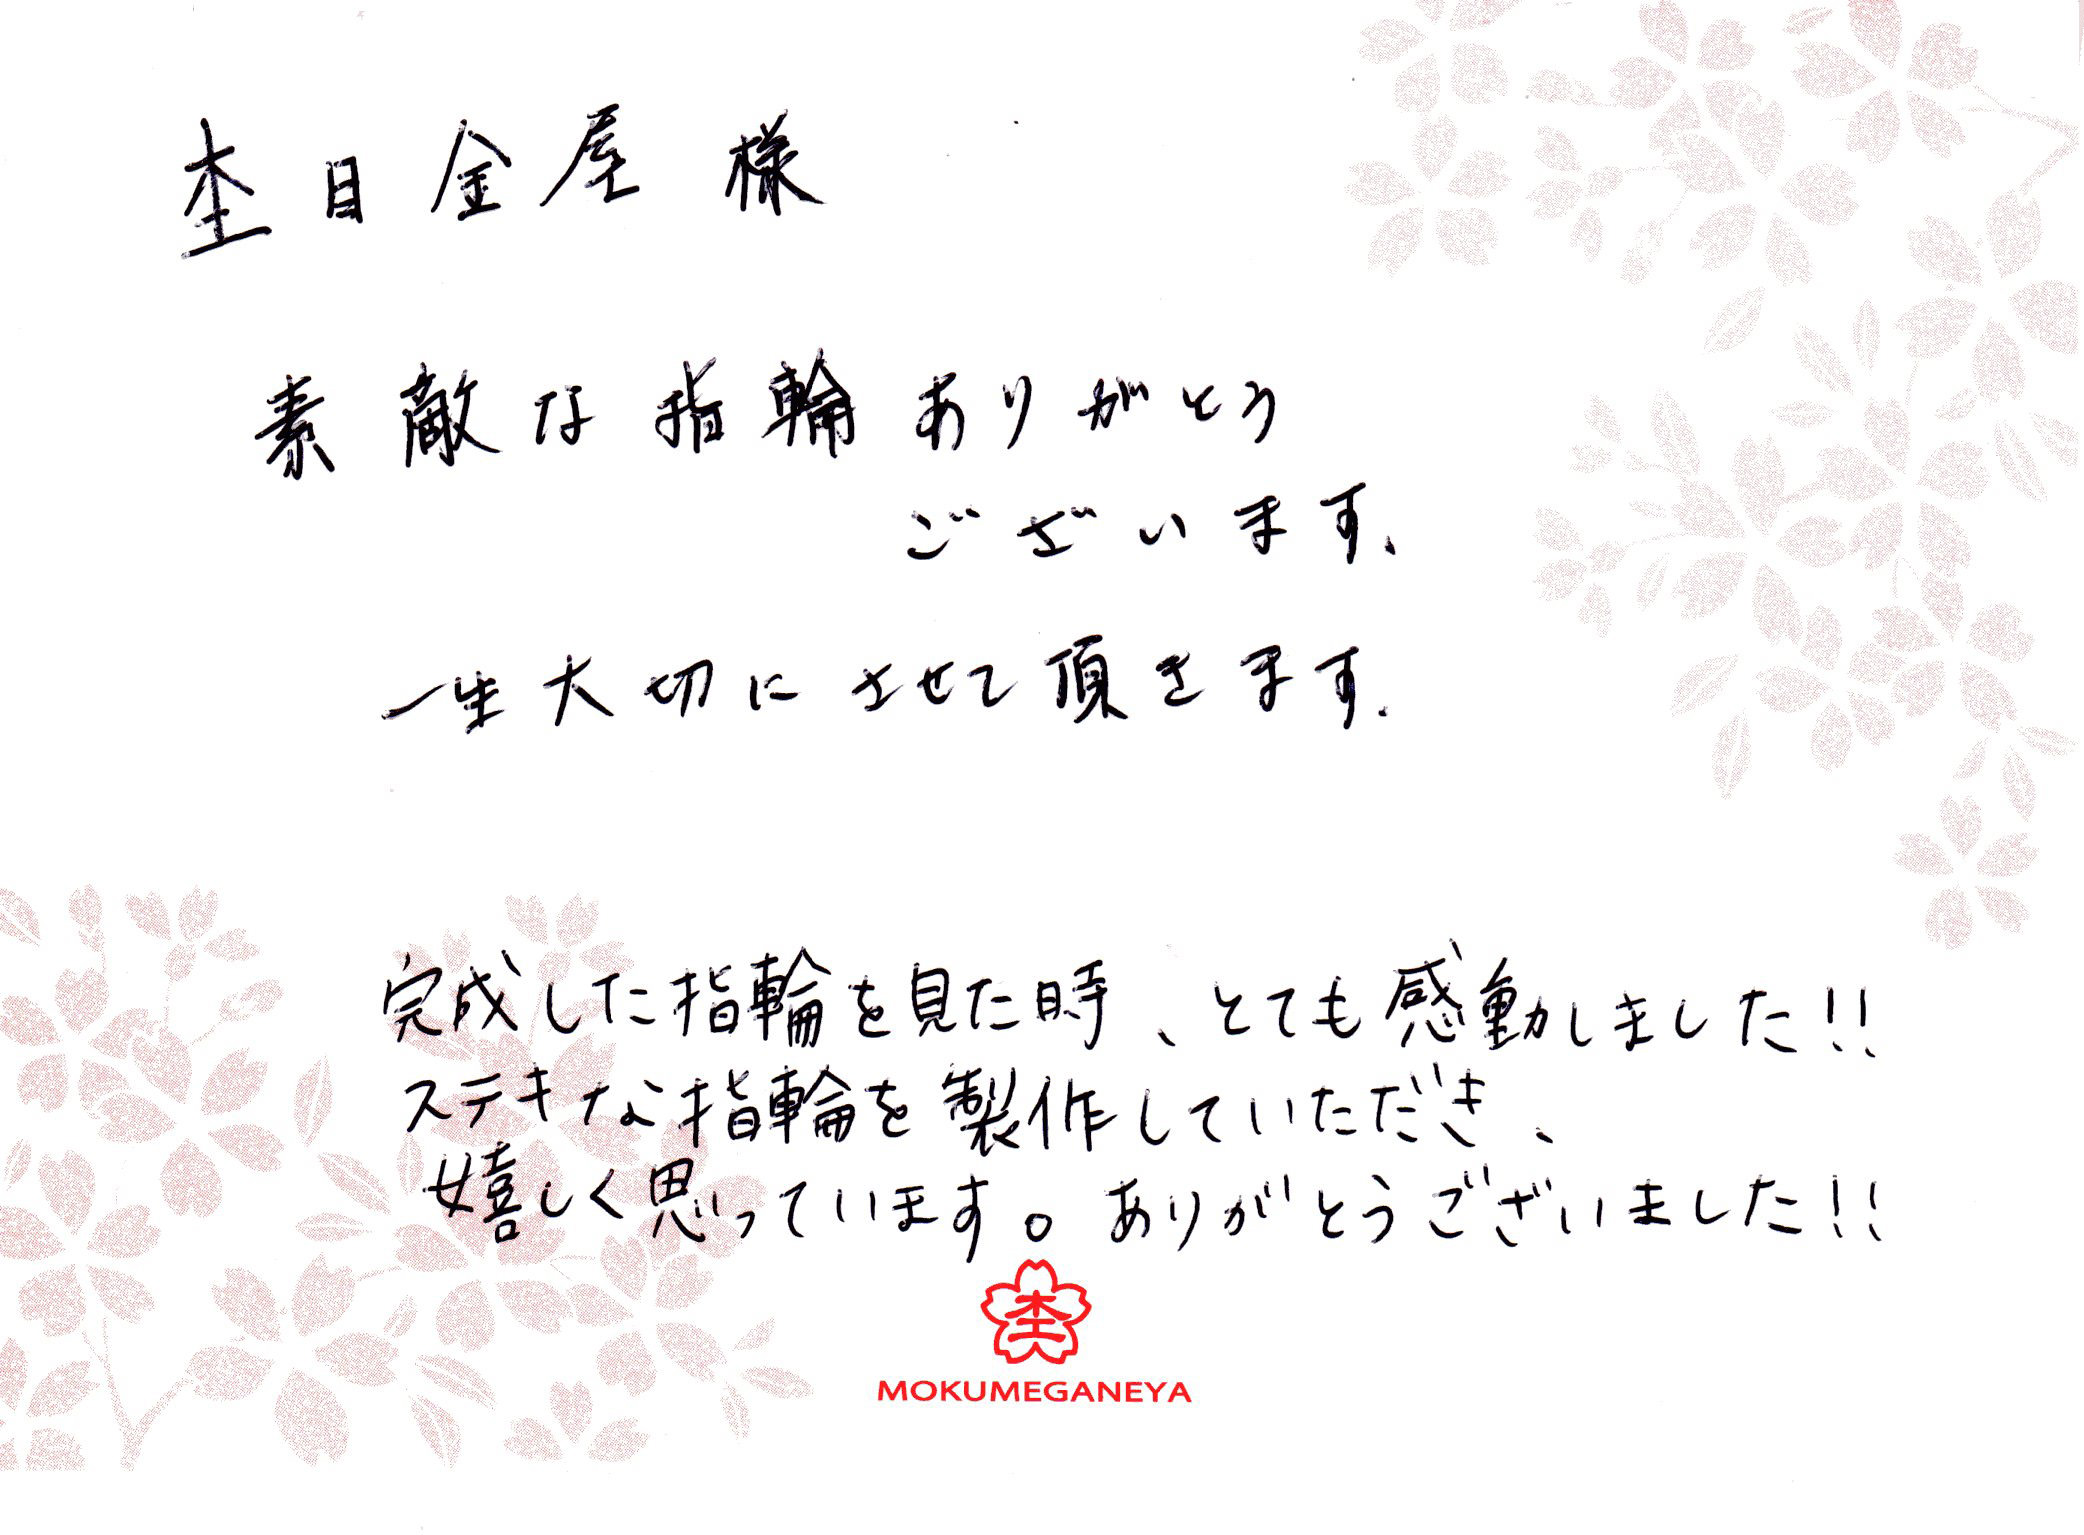 杢目金屋 様
素敵な指輪ありがとう
ございます.
一生大切にさせて頂きます.
完成した指輪を見た時、とても感動しました!!
ステキな指輪を製作していただき、
嬉しく思っています。ありがとうございました!!
杢
MOKUMEGANEYA